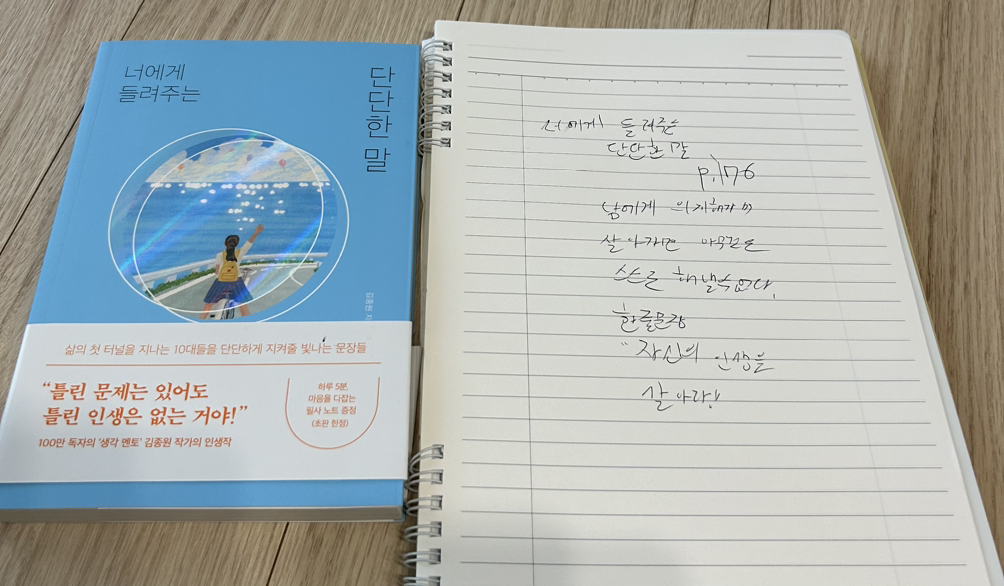 너에게
들려주는
단단한 말
김종원 지
삶의 첫 터널을 지나는 10대들을 단단하게 지켜줄 빛나는 문장들
“틀린 문제는 있어도
틀린 인생은 없는 거야!”
100만 독자의 '생각 멘토' 김종원 작가의 인생작
하루 5분,
마음을 다잡는
필사 노트 증정
(초판 한정)
너에게 들려주는
단단한 말
p.176
남에게 의지해가며
살아가면 아무것도
스스로 해낼수없다.
한줄문장
“자신의 인생을
살아라!